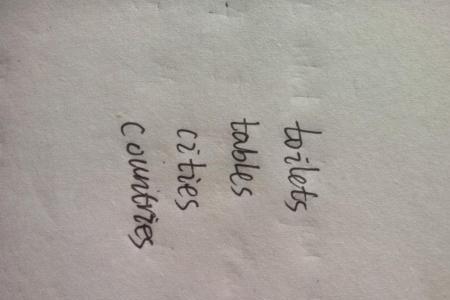 toilets
tables
cities
countries